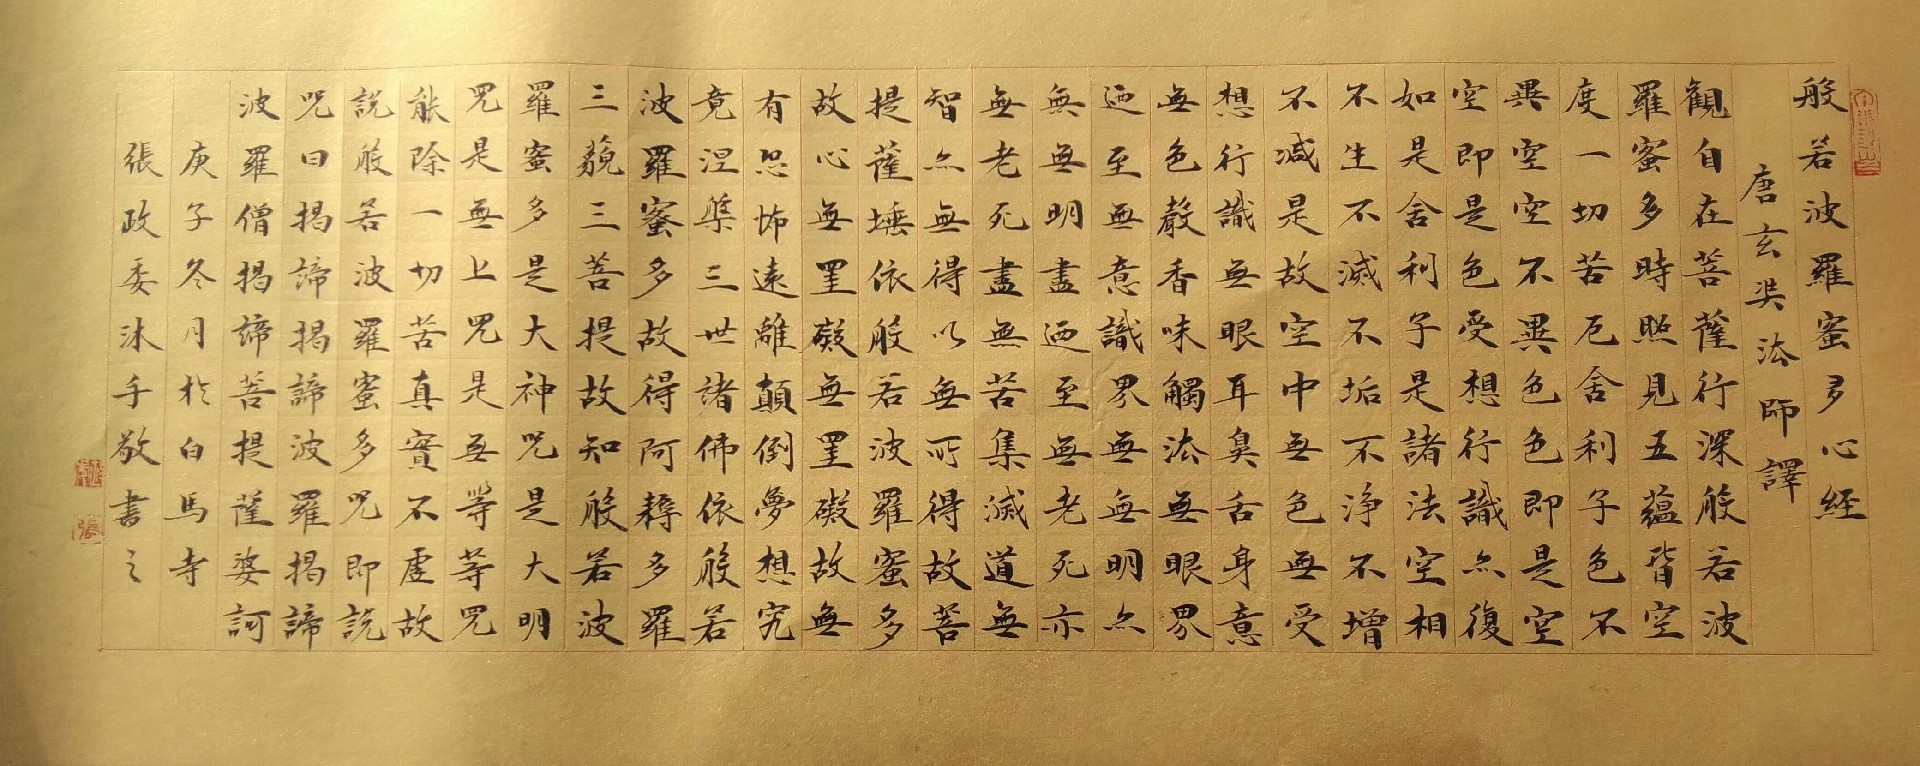 般若波羅蜜多心経
唐玄奘法師譯
觀自在菩薩行深般若波
羅蜜多時照見五蘊皆空
度一切苦厄舍利子色不
異空空不異色色即是空
空即是色受想行識亦復
如是舍利子是諸法空相
不生不滅不垢不淨不增
不減是故空中無色無受
想行識無眼耳鼻舌身意
無色聲香味觸法無眼界
迺至無意識界無無明亦
無無明盡迺至無老死亦
無老死盡無苦集滅道無
智亦無得以無所得故菩
提薩埵依般若波羅蜜多
故心無罣礙無罣礙故無
有恐怖遠離顛倒夢想究
竟涅槃三世諸佛依般若
波羅蜜多故得阿耨多羅
三藐三菩提故知般若波
羅蜜多是大神咒是大明
咒是無上咒是無等等咒
能除一切苦真實不虛故
說般若波羅蜜多咒即說
咒曰揭諦揭諦波羅揭諦
波羅僧揭諦菩提薩婆訶
庚子冬月於白馬寺
張政委沐手敬書之
張